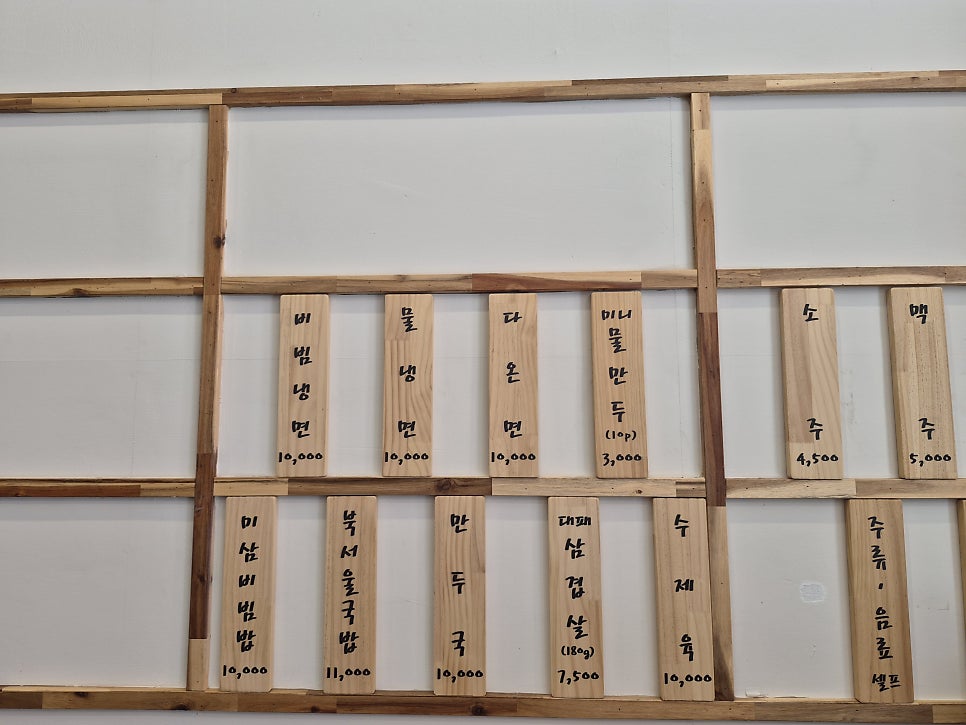 비빔냉면
10,000
물냉면
10,000
다온면
10,000
미니
물만두
(10p)
3,000
소주
4,500
맥주
5,000
미삼비빔밥
10,000
북서울국밥
11,000
만두국
10,000
대패
삼겹살
(180g)
7,500
수제육
10,000
주류,음료
셀프